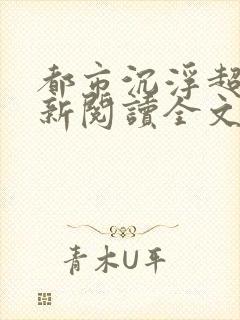 都市沉浮超
新閱讀全文
青木U平